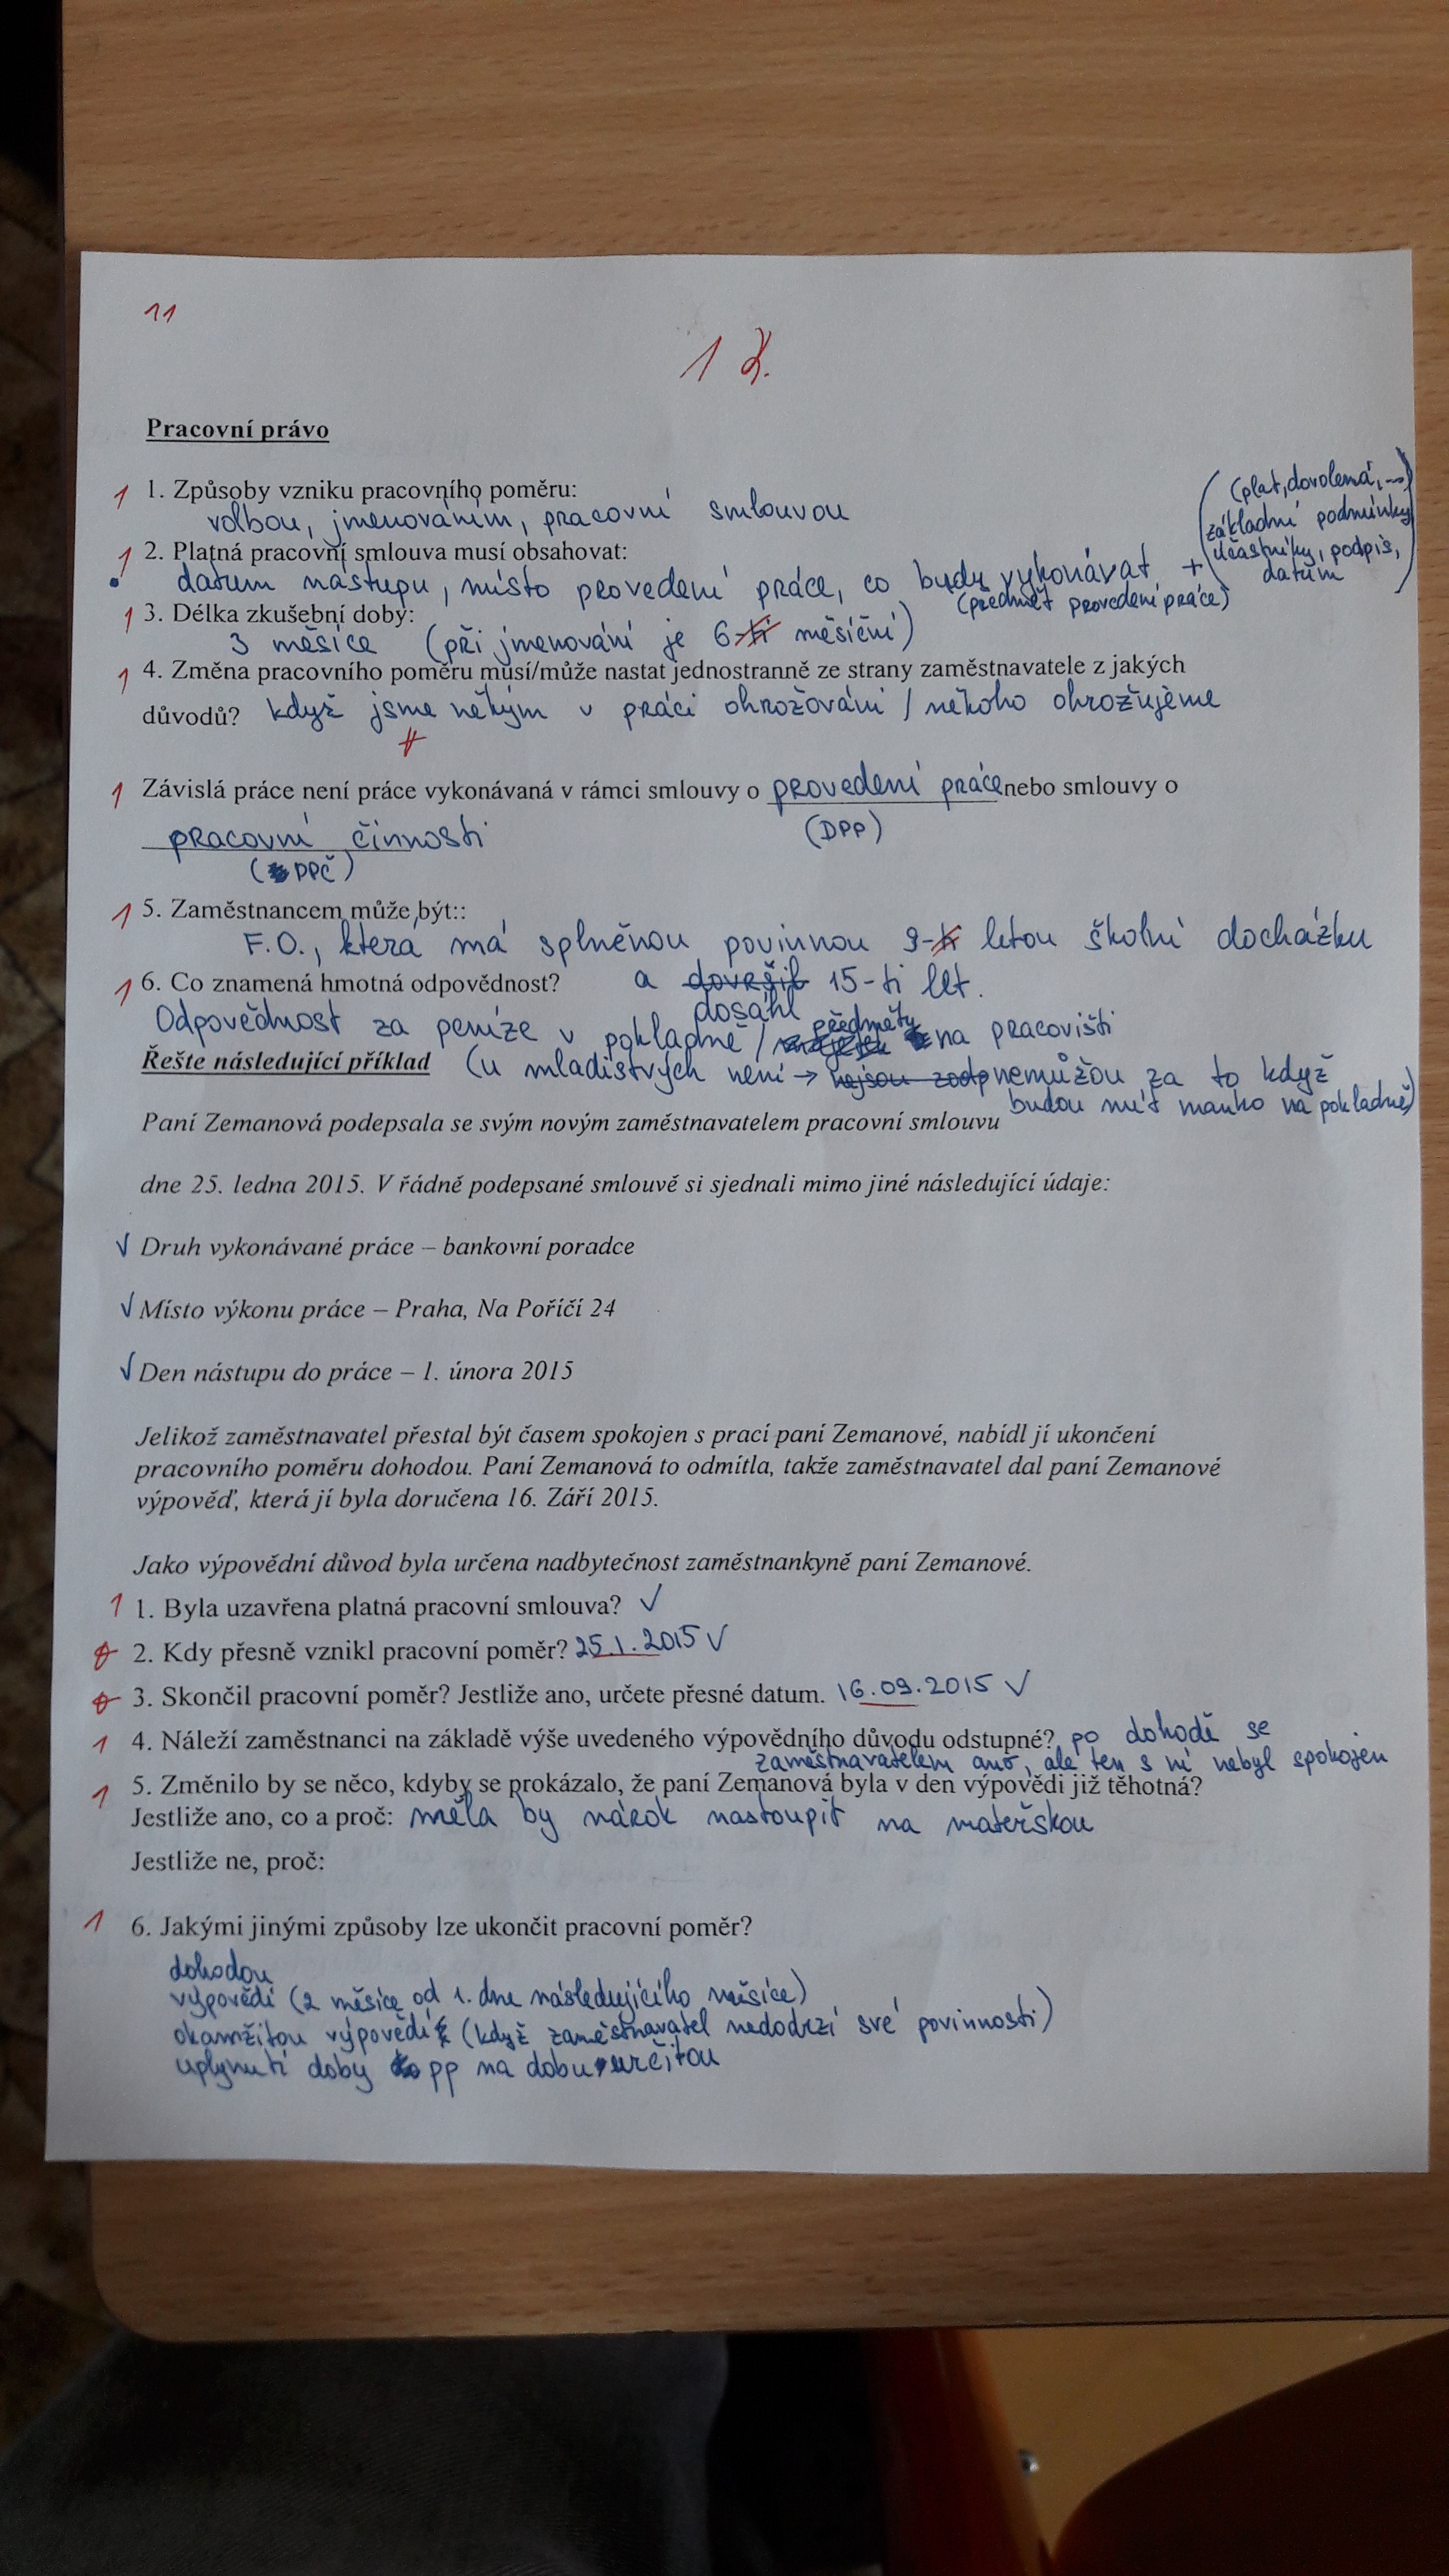 11
1
Pracovní právo
1 1. Způsoby vzniku pracovního poměru:
volbou, jmenováním, pracovní smlouvou
(plat, dovolená, ...)
základní podmínky
účastníky, podpis,
datum
1 2. Platná pracovní smlouva musí obsahovat:
datum nástupu, místo provedení práce, co budu vykonávat +
(předmět provedení práce)
1 3. Délka zkušební doby:
3 měsíce (při jmenování je 6-ti měsíční)
1 4. Změna pracovního poměru musí/může nastat jednostranně ze strany zaměstnavatele z jakých
důvodů? když jsme někým v práci ohrožováni / někoho ohrožujeme
1 Závislá práce není práce vykonávaná v rámci smlouvy o provedení práce nebo smlouvy o
(DPP)
pracovní činnosti
(DPČ)
1 5. Zaměstnancem může být::
F.O., která má splněnou povinnou 9-ti letou školní docházku
a dovršil dosáhl 15-ti let.
1 6. Co znamená hmotná odpovědnost?
Odpovědnost za peníze v pokladně / předměty na pracovišti
Řešte následující příklad (u mladistvých není → nejsou zodp nemůžou za to když
budou mít manko na pokladně)
Paní Zemanová podepsala se svým novým zaměstnavatelem pracovní smlouvu
dne 25. ledna 2015. V řádně podepsané smlouvě si sjednali mimo jiné následující údaje:
✓ Druh vykonávané práce – bankovní poradce
✓ Místo výkonu práce – Praha, Na Poříčí 24
✓ Den nástupu do práce – 1. února 2015
Jelikož zaměstnavatel přestal být časem spokojen s prací paní Zemanové, nabídl jí ukončení
pracovního poměru dohodou. Paní Zemanová to odmítla, takže zaměstnavatel dal paní Zemanové
výpověď, která jí byla doručena 16. Září 2015.
Jako výpovědní důvod byla určena nadbytečnost zaměstnankyně paní Zemanové.
1 1. Byla uzavřena platná pracovní smlouva? ✓
2. Kdy přesně vznikl pracovní poměr? 25.1.2015 ✓
3. Skončil pracovní poměr? Jestliže ano, určete přesné datum. 16.09.2015 ✓
1 4. Náleží zaměstnanci na základě výše uvedeného výpovědního důvodu odstupné? po dohodě se
zaměstnavatelem ano, ale ten s ní nebyl spokojen
1 5. Změnilo by se něco, kdyby se prokázalo, že paní Zemanová byla v den výpovědi již těhotná?
Jestliže ano, co a proč: měla by nárok nastoupit na mateřskou
Jestliže ne, proč:
1 6. Jakými jinými způsoby lze ukončit pracovní poměr?
dohodou
výpovědí (2 měsíce od 1. dne následujícího měsíce)
okamžitou výpovědí (když zaměstnavatel nedodrží své povinnosti)
uplynutí doby pp na dobu určitou